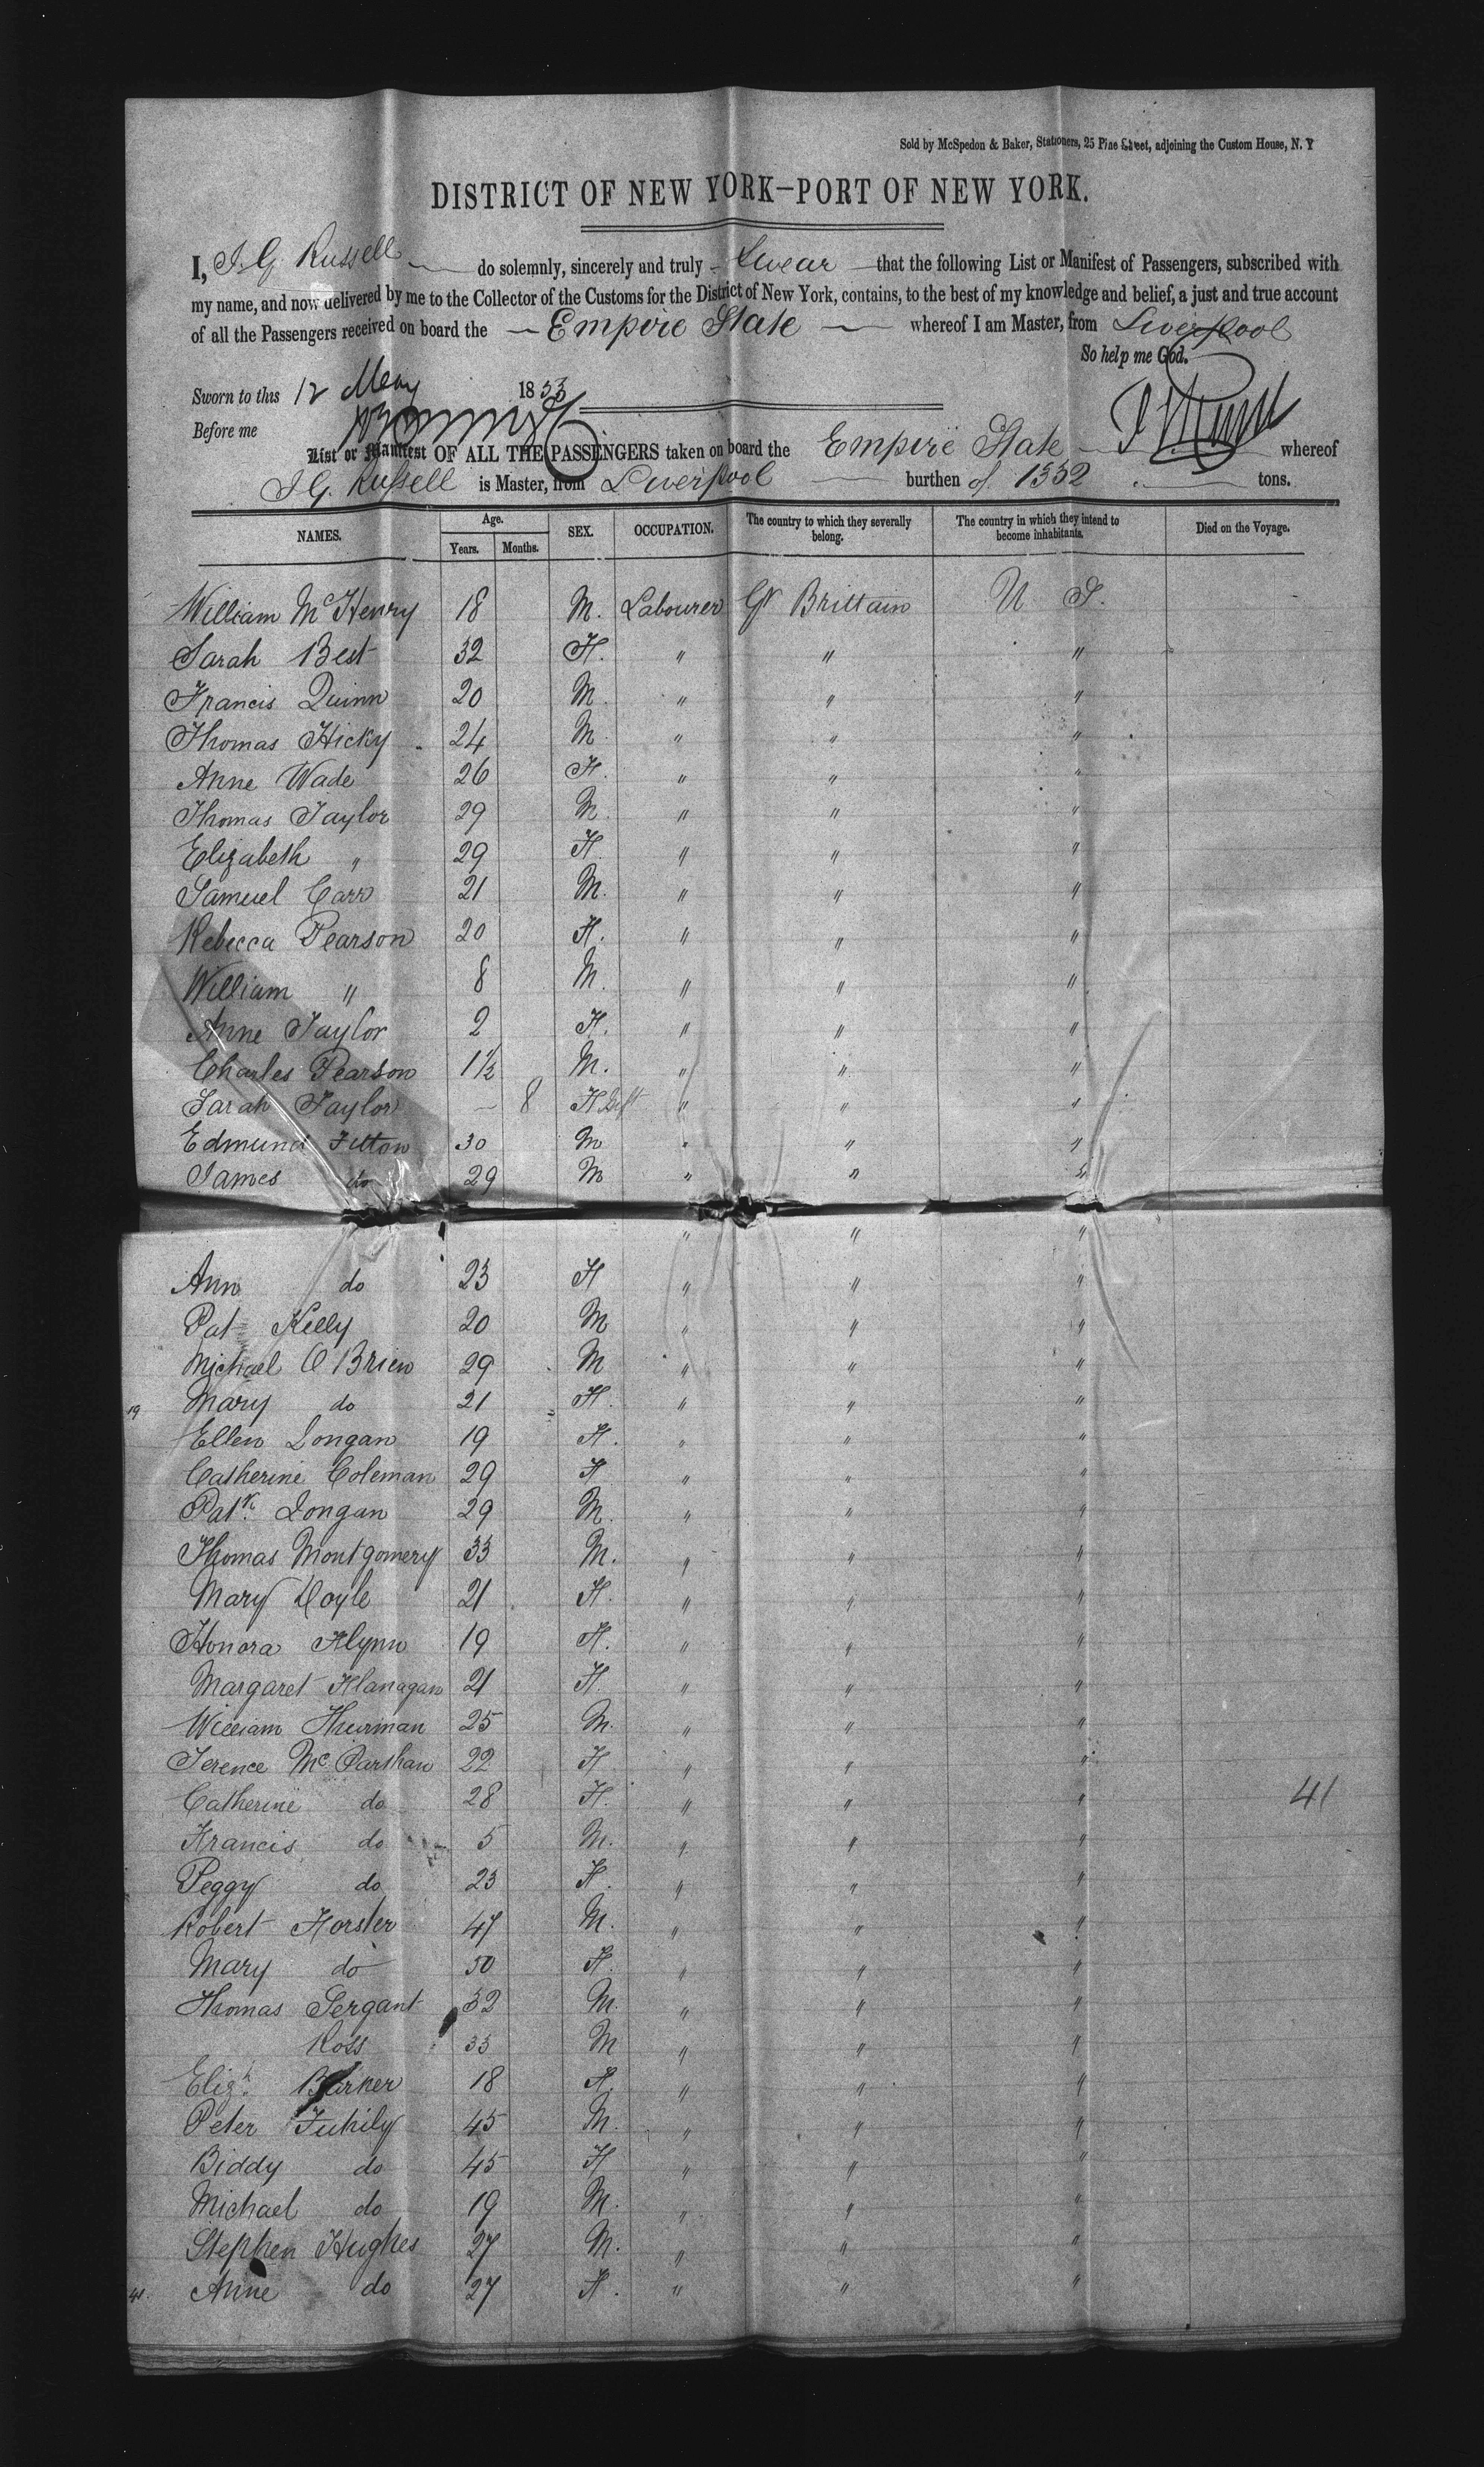 Sold by McSpedon & Baker, Stationers, 25 Pine Street, adjoining the Custom House, N. Y
DISTRICT OF NEW YORK—PORT OF NEW YORK.
I, J. G. Russell do solemnly, sincerely and truly Swear that the following List or Manifest of Passengers, subscribed with
my name, and now delivered by me to the Collector of the Customs for the District of New York, contains, to the best of my knowledge and belief, a just and true account
of all the Passengers received on board the Empire State whereof I am Master, from Liverpool
So help me God.
Sworn to this 12 May 1853
Before me
List or Manifest OF ALL THE PASSENGERS taken on board the Empire State whereof
J G. Russell is Master, from Liverpool burthen of 1332 tons.
NAMES. Age. Years. Months. SEX. OCCUPATION. The country to which they severally belong. The country in which they intend to become inhabitants. Died on the Voyage.
William McHenry 18 M. Labourer Gt Brittain U S.
Sarah Best 32 F. " " "
Francis Quinn 20 M " " "
Thomas Hicky 24 M " " "
Anne Wade 26 F. " " "
Thomas Taylor 29 M. " " "
Elizabeth " 29 F " " "
Samuel Carr 21 M. " " "
Rebecca Pearson 20 F. " " "
William " 8 M. " " "
Anne Taylor 2 F. " " "
Charles Pearson 1½ M. " " "
Sarah Taylor — 8 F " " "
Edmund Fitton 30 M " " "
James do 29 M " " "
" " "
Ann do 23 F " " "
Pat Kelly 20 M " " "
Michael O Brien 29 M " " "
19 Mary do 21 F. " " "
Ellen Longan 19 F. " " "
Catherine Coleman 29 F " " "
Patk. Longan 29 M. " " "
Thomas Montgomery 33 M. " " "
Mary Doyle 21 F. " " "
Honora Flynn 19 F. " " "
Margaret Flanagan 21 F. " " "
William Thurman 25 M. " " "
Terence Mc Parthan 22 F " " "
Catherine do 28 F. " " " 41
Francis do 5 M. " " "
Peggy do 23 F. " " "
Robert Forster 47 M. " " "
Mary do 50 F. " " "
Thomas Sergant 32 M. " " "
Ross 33 M " " "
Elizh. Barker 18 F. " " "
Peter Fuhily 45 M. " " "
Biddy do 45 F " " "
Michael do 19 M. " " "
Stephen Hughes 27 M. " " "
41. Anne do 27 F. " " "